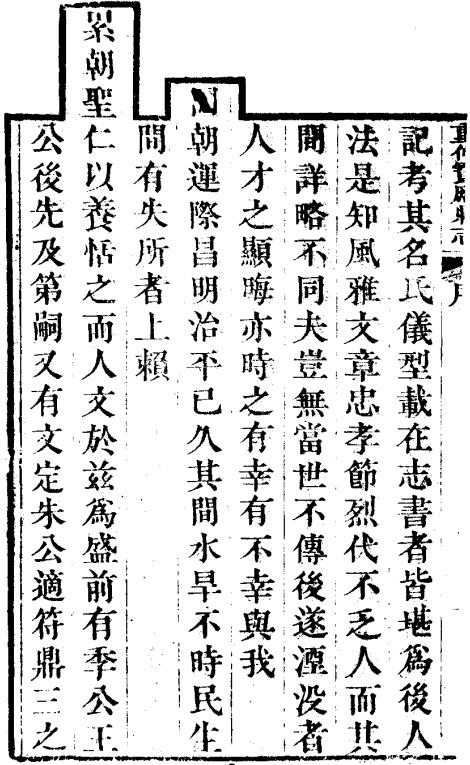 重修寶應縣志
記考其名氏儀型載在志書者皆堪爲後人
法是知風雅文章忠孝節烈代不乏人而其
間詳略不同夫豈無當世不傳後遂湮沒者
人才之顯晦亦時之有幸有不幸與我
朝運際昌明治平已久其間水旱不時民生
間有失所者上賴
累朝聖仁以養恬之而人文於兹爲盛前有季公王
公後先及第嗣又有文定朱公適符鼎三之